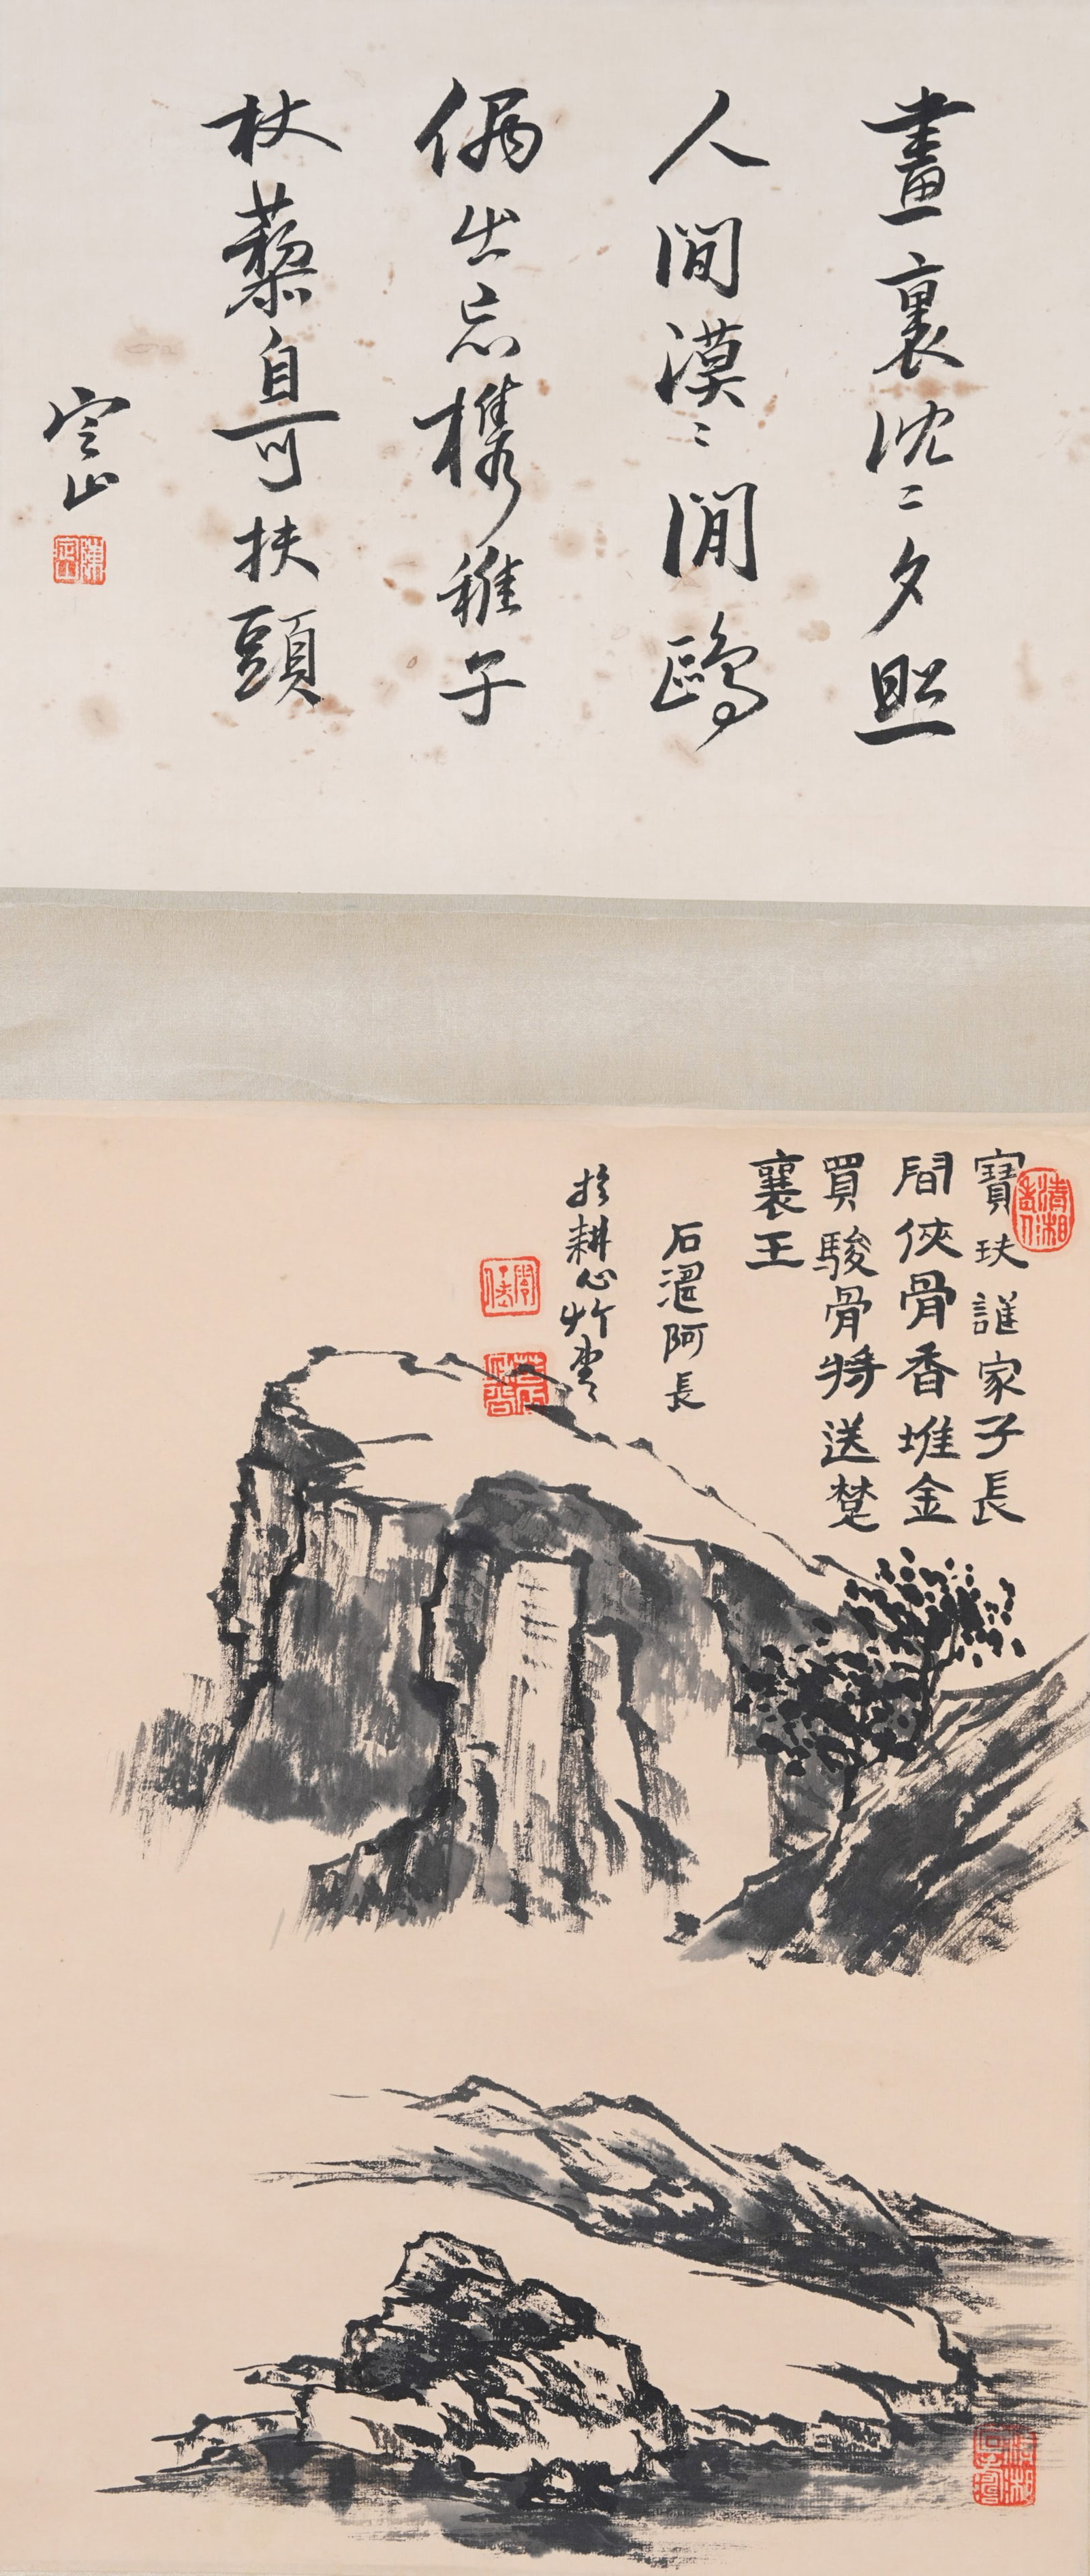 畫裏沈〻夕照
人間漠〻閒鷗
偶出忘携稚子
杖藜自可扶頭
定山
陳定山
寶玦誰家子長
聞俠骨香堆金
買駿骨將送楚
襄王
石阿長
於耕心艸堂